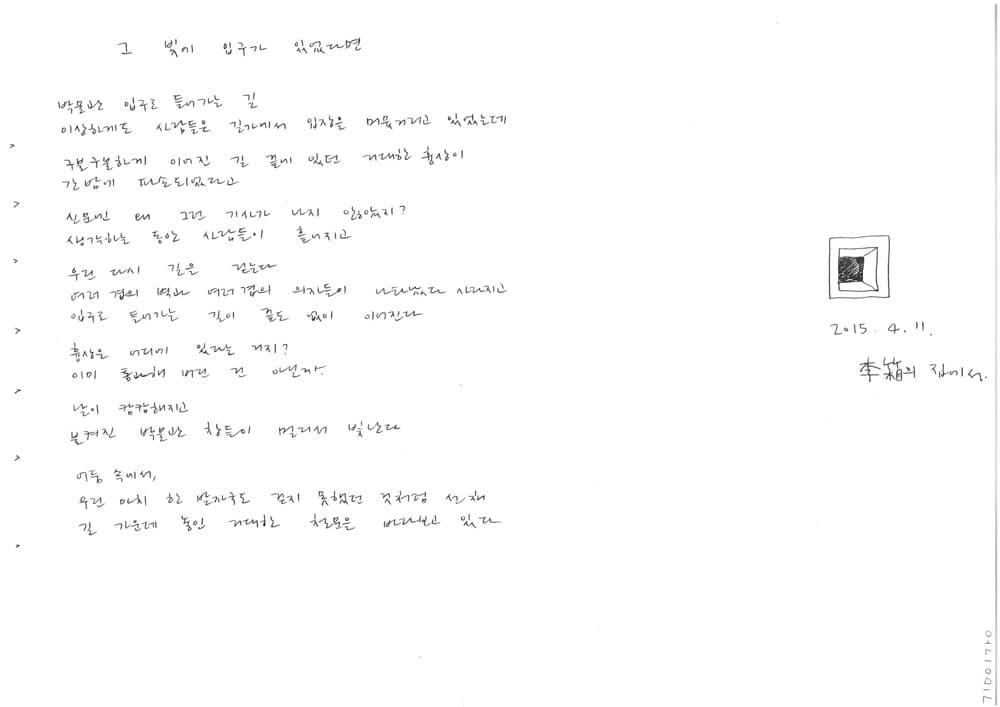 그 빛에 입구가 있었다면
박물관 입구로 들어가는 길
이상하게도 사람들은 길가에서 입장을 머뭇거리고 있었는데
구불구불하게 이어진 길 끝에 있던 거대한 흉상이
간밤에 파손되었다고
신문엔 왜 그런 기사가 나지 않았지?
생각하는 동안 사람들이 흩어지고
우린 다시 길을 걷는다
여러 겹의 벽과 여러 겹의 의자들이 나타났다 사라지고
입구로 들어가는 길이 끝도 없이 이어진다
흉상은 어디에 있다는 거지?
이미 통과해 버린 건 아닐까.
날이 캄캄해지고
불켜진 박물관 창들이 멀리서 빛난다
어둠 속에서,
우린 마치 한 발자국도 걷지 못했던 것처럼 선 채
길 가운데 놓인 거대한 철문을 바라보고 있다
2015. 4. 11.
李箱의 집에서.